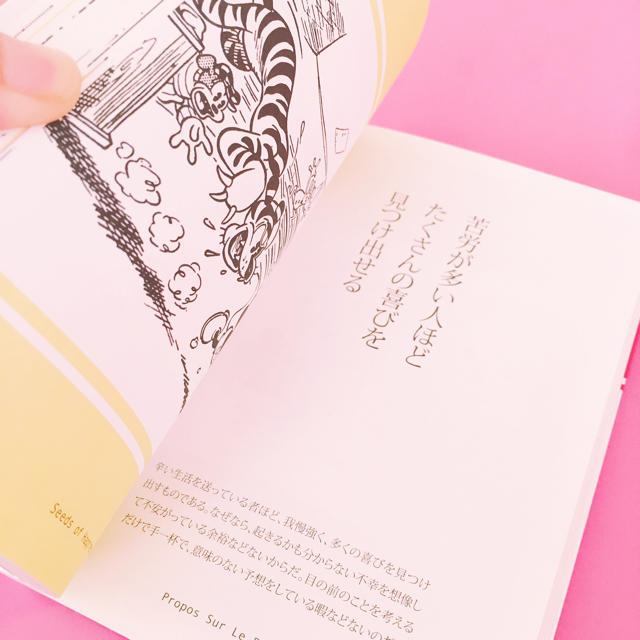 苦労が多い人ほど
たくさんの喜びを
見つけ出せる
辛い生活を送っている者ほど、我慢強く、多くの喜びを見つけ
出すものである。なぜなら、起きるかも分からない不幸を想像し
て不安がっている余裕などないからだ。目の前のことを考える
だけで手一杯で、意味のない予想をしている暇などないの
Seeds of
Propos Sur Le